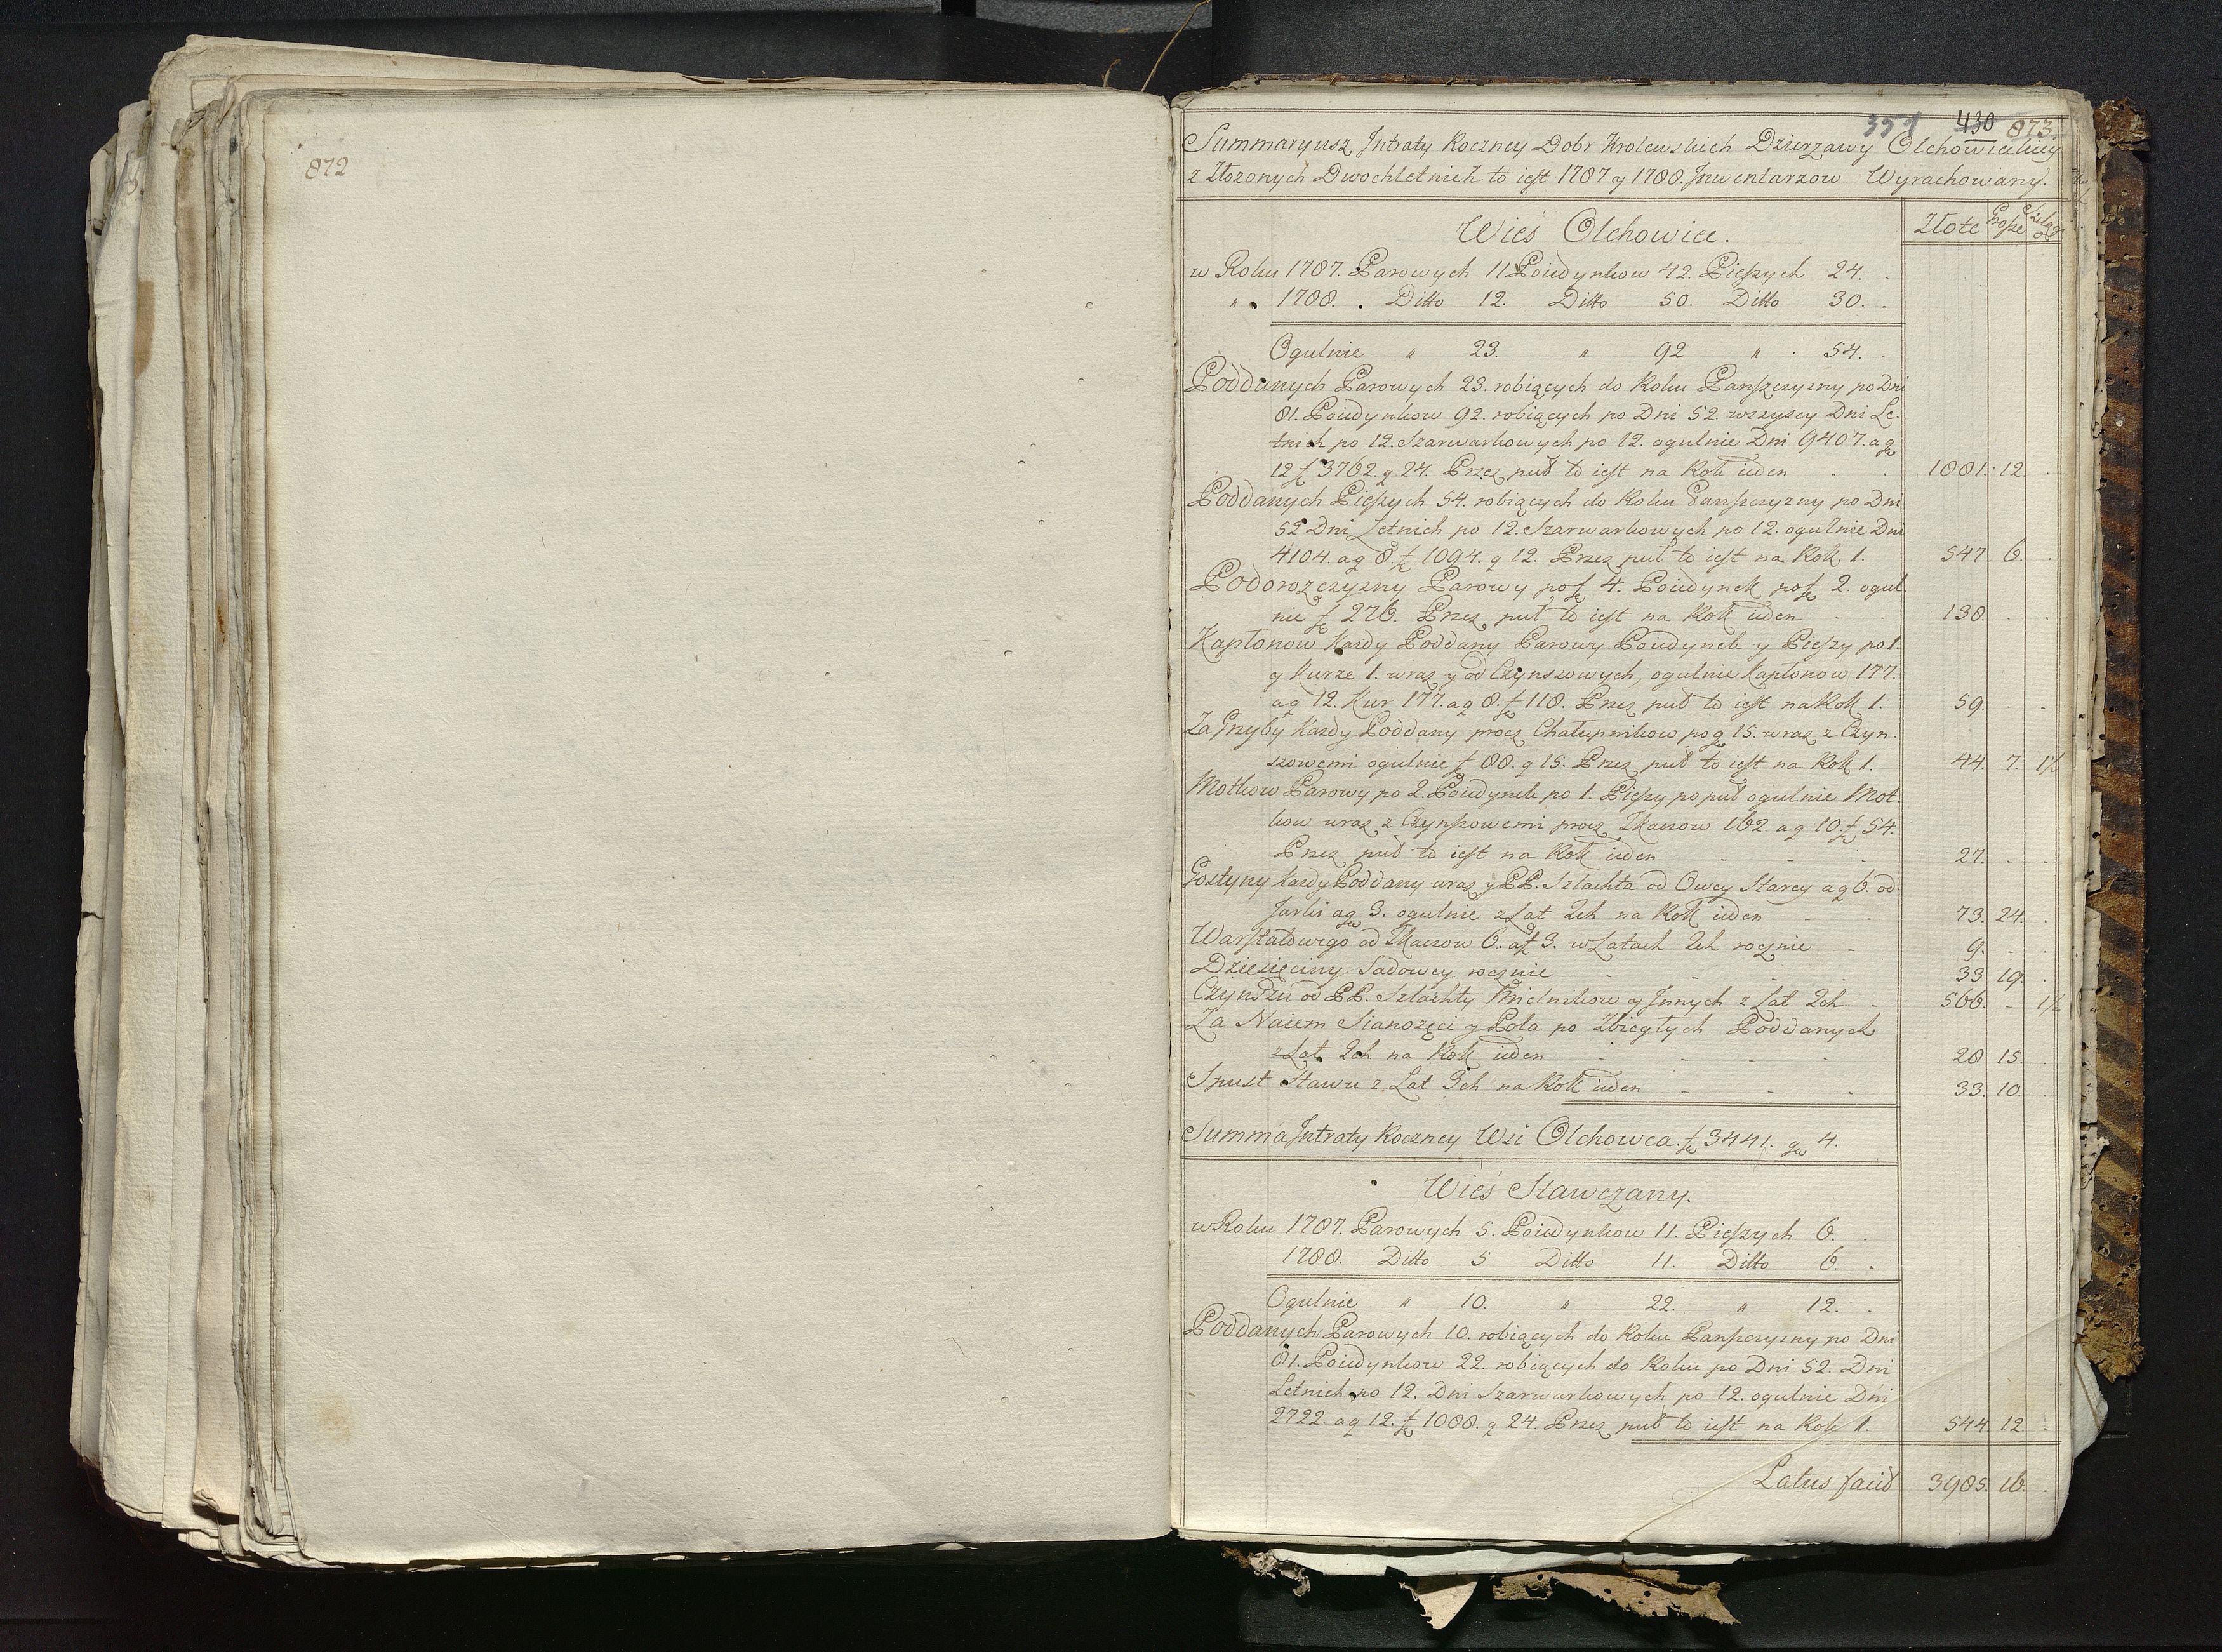 872
551 430 873
Summaryusz Intraty Roczney Dobr Krolewskich Dzierzawy Olchowieckiey
z Złozonych Dwochletnich to iest 1787 y 1788. Inwentarzow Wyrachowany.
Wieś Olchowiec. Złote Grosze Szelągi
w Roku 1787. Parowych 11 Poiedynkow 42. Pieszych 24.
" 1788. Ditto 12. Ditto 50. Ditto 30.
Ogulnie " 23. " 92 " 54.
Poddanych Parowych 23. robiących do Roku Panszczyzny po Dni
81. Poiedynkow 92. robiących po Dni 52. wszyscy Dni Le-
tnich po 12. Szarwarkowych po 12. ogulnie Dni 9407. a g
12 f 3762. g 24. Przez puł to iest na Rok ieden 1881. 12.
Poddanych Pieszych 54. robiących do Roku Panszczyzny po Dni
52 Dni Letnich po 12. Szarwarkowych po 12. ogulnie Dni
4104. a g 8. f 1094. g 12. Przez puł to iest na Rok 1. 547 6.
Podorozczyzny Parowy po f 4. Poiedynek po f 2. ogul
nie f 276. Przez puł to iest na Rok ieden 138.
Kapłonow Kazdy Poddany Parowy Poiedynek y Pieszy po 1.
y Kurze 1. wraz y od Czynszowych, ogulnie Kapłonow 177.
a g 12. Kur 177. a g 8. f 118. Przez puł to iest na Rok 1. 59.
Za Grzyby Kazdy Poddany procz Chałupnikow po g 15. wraz z Czyn-
szowemi ogulnie f 88. g 15. Przez puł to iest na Rok 1. 44. 7. 1½
Motkow Parowy po 2. Poiedynek po 1. Pieszy po puł ogulnie Mot-
kow wraz z Czynszowemi procz Tkaczow 162. a g 10. f 54.
Przez puł to iest na Rok ieden 27.
Gostyny Kazdy Poddany wraz y PP. Szlachta od Owcy Starey a g 6. od
Jarki a g 3. ogulnie z Lat 2ch na Rok ieden 73. 24.
Warsztatowego od Tkaczow 6. a f 3. w Latach 2ch rocznie 9.
Dziesięciny Sadowey rocznie 33 19.
Czynszu od PP. Szlachty Mielnikow y Innych z Lat 2ch 566. 1½
Za Naiem Sianozęci y Pola po Zbiegłych Poddanych
z Lat 2ch na Rok ieden 28 15.
Spust Stawu z Lat 3ch na Rok ieden 33. 10.
Summa Intraty Roczney Wsi Olchowca. f 3441. g 4.
Wieś Stawczany.
w Roku 1787. Parowych 5. Poiedynkow 11. Pieszych 6.
1788. Ditto 5 Ditto 11. Ditto 6.
Ogulnie " 10. " 22. " 12.
Poddanych Parowych 10. robiących do Roku Panszczyzny po Dni
81. Poiedynkow 22. robiących do Roku po Dni 52. Dni
Letnich po 12. Dni Szarwarkowych po 12. ogulnie Dni
2722. a g 12. f 1088. g 24. Przez puł to iest na Rok 1. 544. 12.
Latus facit 3985. 16.